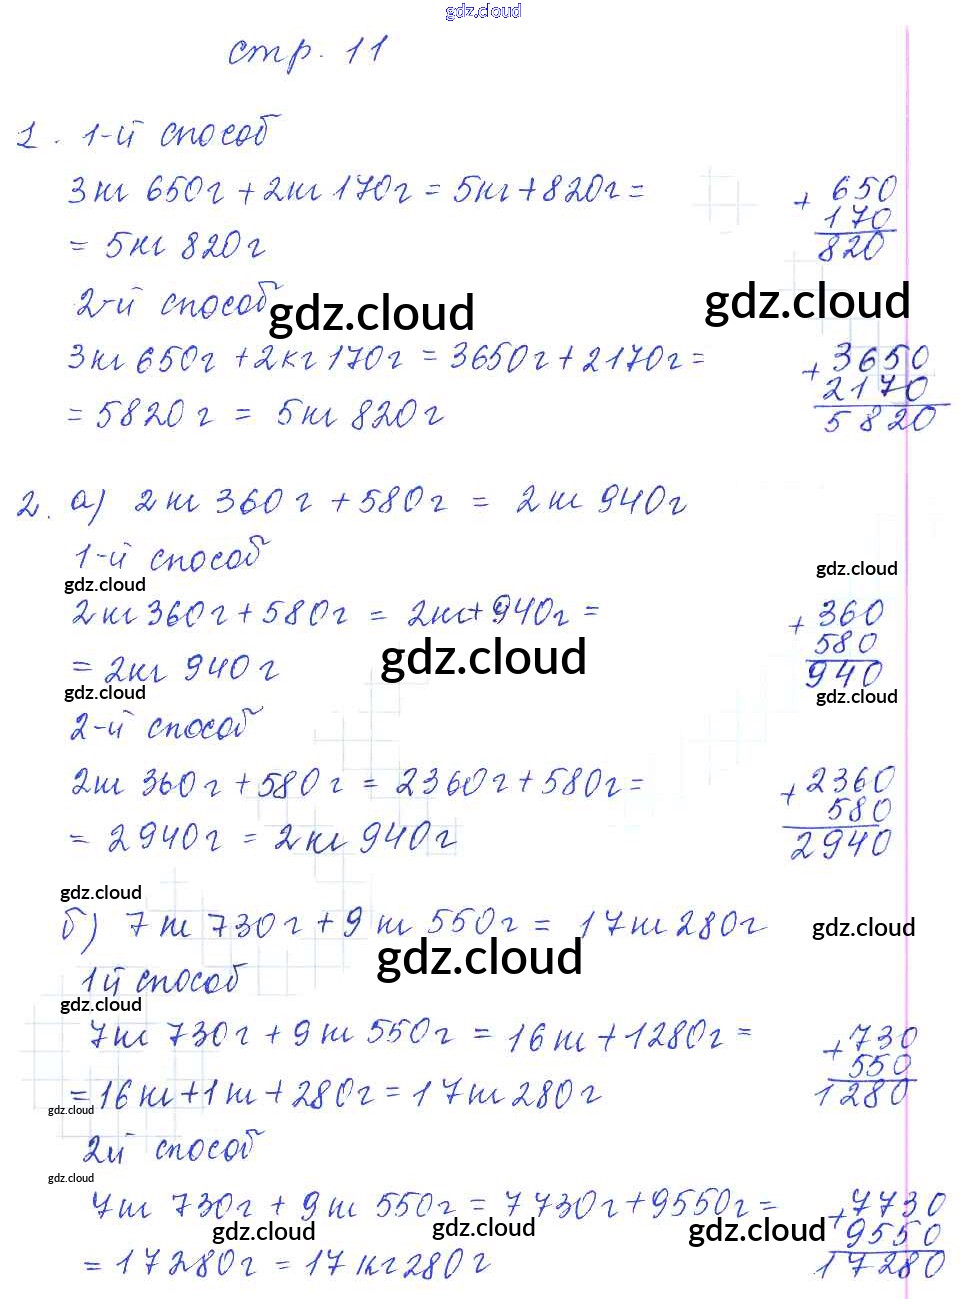 gdz.cloud
стр. 11
1. 1-й способ
3кг 650г + 2кг 170г = 5кг + 820г =
+ 650
170
820
= 5кг 820г
2-й способ
gdz.cloud
gdz.cloud
3кг 650г + 2кг 170г = 3650г + 2170г =
+ 3650
2170
5820
= 5820г = 5кг 820г
2. а) 2кг 360г + 580г = 2кг 940г
1-й способ
gdz.cloud
gdz.cloud
2кг 360г + 580г = 2кг + 940г =
+ 360
580
940
= 2кг 940г
gdz.cloud
gdz.cloud
gdz.cloud
2-й способ
2кг 360г + 580г = 2360г + 580г =
+ 2360
580
2940
= 2940г = 2кг 940г
gdz.cloud
б) 7кг 730г + 9кг 550г = 17кг 280г
gdz.cloud
gdz.cloud
1й способ
gdz.cloud
7кг 730г + 9кг 550г = 16кг + 1280г =
+ 730
550
1280
= 16кг + 1кг + 280г = 17кг 280г
gdz.cloud
2й способ
gdz.cloud
7кг 730г + 9кг 550г = 7730г + 9550г =
+ 7730
9550
17280
gdz.cloud
gdz.cloud
gdz.cloud
= 17280г = 17кг 280г